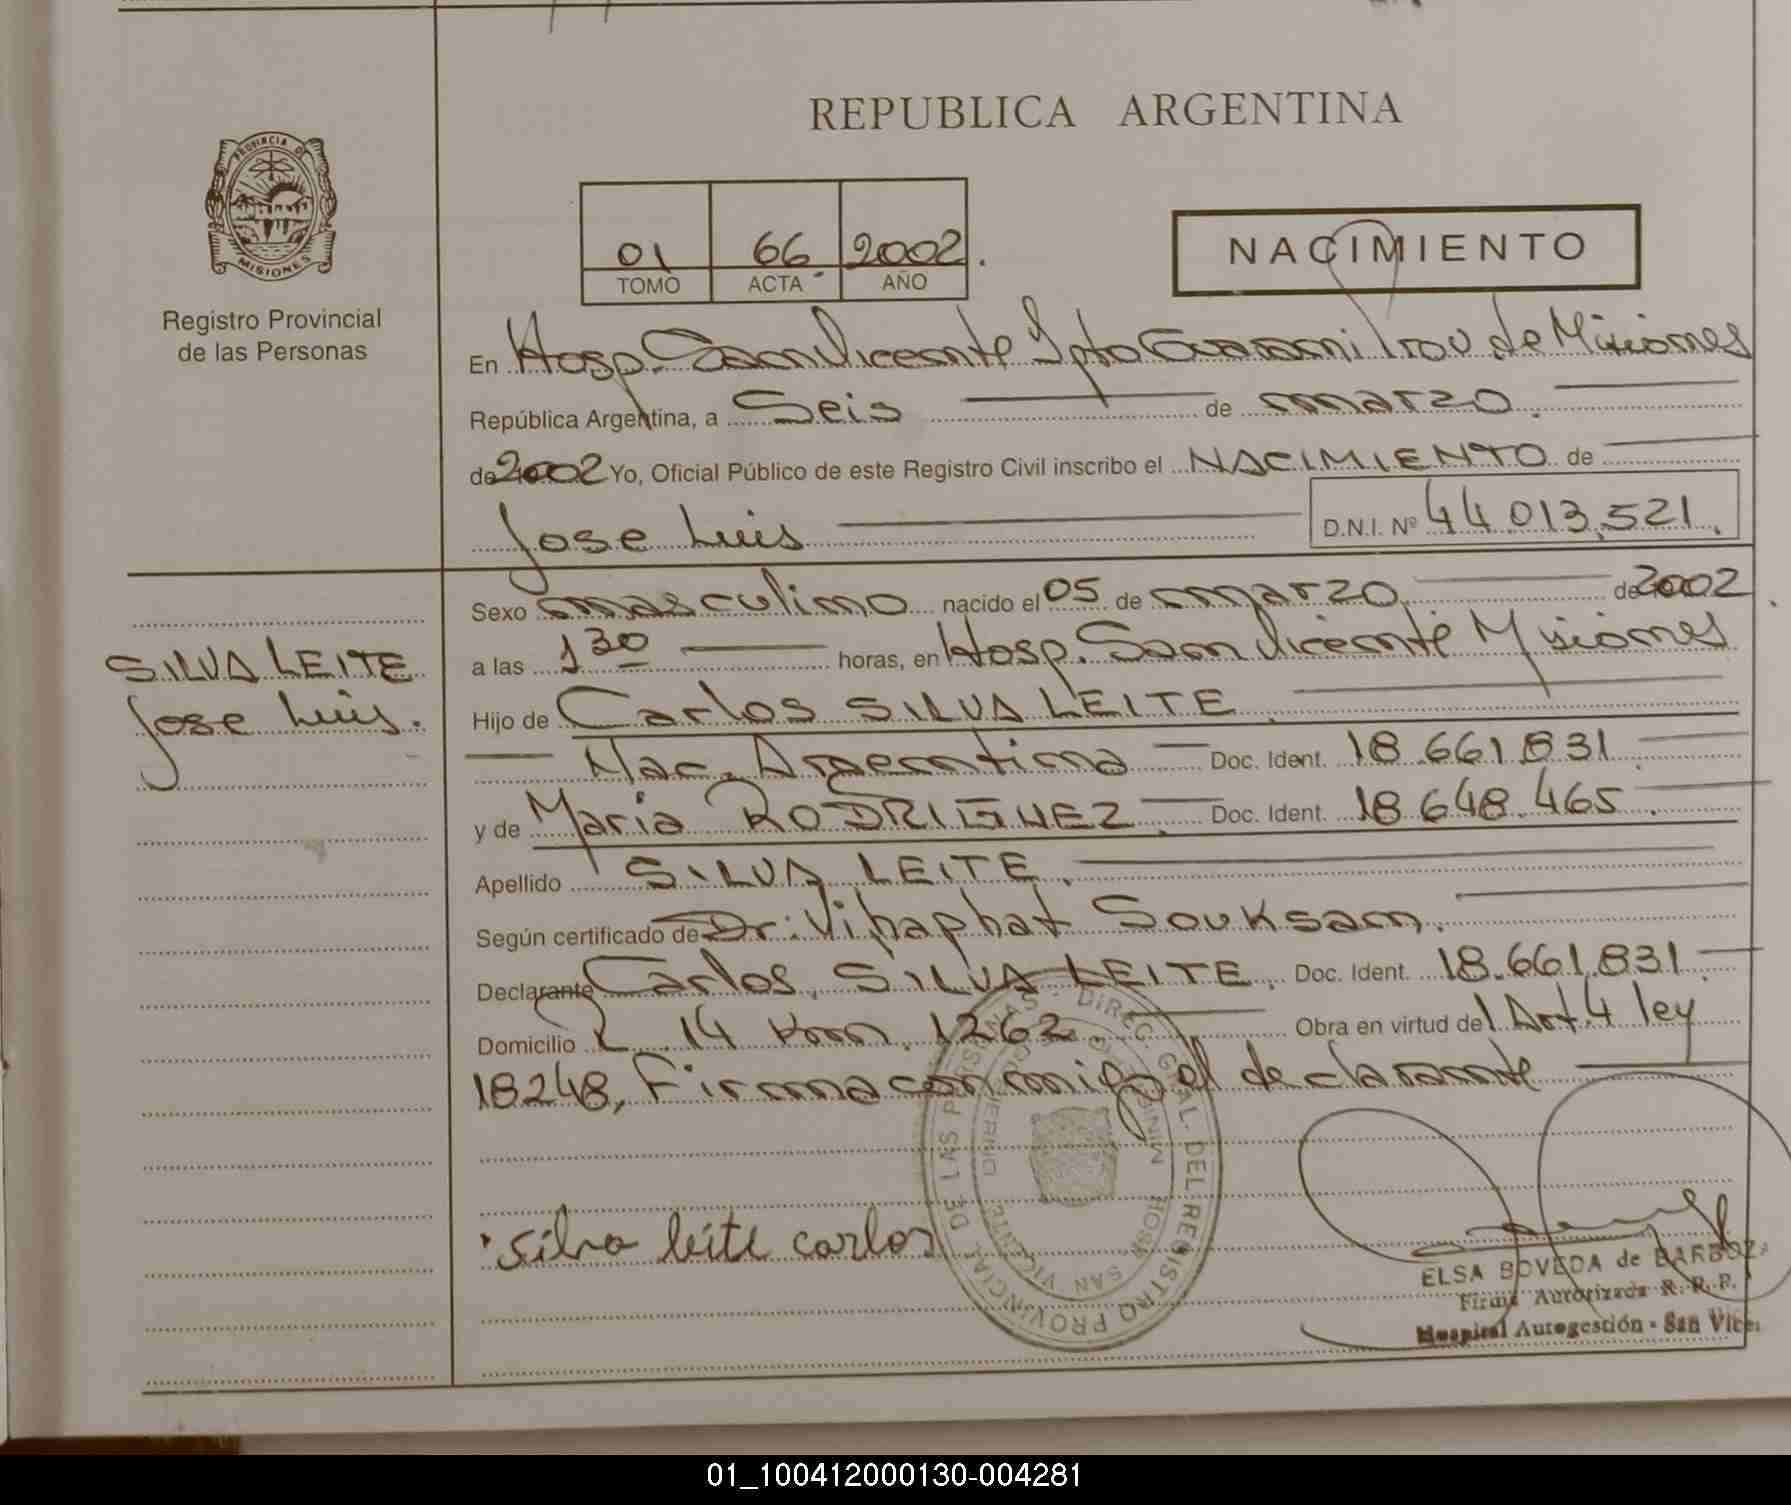 REPUBLICA ARGENTINA
PROVINCIA DE
MISIONES
Registro Provincial
de las Personas
01 66 2002.
TOMO ACTA AÑO
NACIMIENTO
En Hosp. San Vicente Dpto Guarani Prov de Misiones
República Argentina, a Seis de marzo.
de 2002 Yo, Oficial Público de este Registro Civil inscribo el NACIMIENTO de
Jose Luis D.N.I. Nº 44.013.521.
Sexo masculino nacido el 05 de marzo de 2002.
a las 1 30 horas, en Hosp. San Vicente Misiones
SILVA LEITE
Jose Luis.
Hijo de Carlos SILVA LEITE.
Nac. Argentina Doc. Ident. 18.661.831.
y de Maria RODRIGUEZ. Doc. Ident. 18.648.465.
Apellido SILVA LEITE.
Según certificado de Dr: Vihaphat Souksam.
Declarante Carlos SILVA LEITE. Doc. Ident. 18.661.831.
Domicilio 14 Km. 1262. Obra en virtud del Art. 4 ley
18248, Firma conmigo el declarante
silva leite carlos
DIREC. GRAL. DEL REGISTRO PROVINCIAL DE LAS PERSONAS
HOSP. SAN VICENTE
ELSA BOVEDA de BARBOZA
Firma Autorizada R. R. P.
Hospital Autogestión - San Vice.
01_100412000130-004281